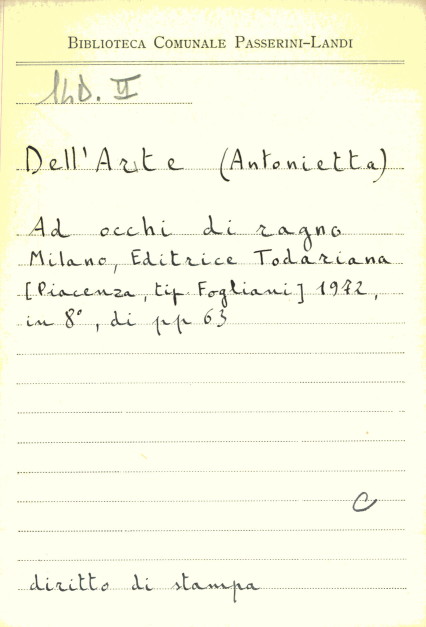 BIBLIOTECA COMUNALE PASSERINI-LANDI
14D. II
Dell'Arte (Antonietta)
Ad occhi di ragno
Milano, Editrice Todariana
[Piacenza, tip. Fogliani] 1972,
in 8°, di pp 63
C
diritto di stampa